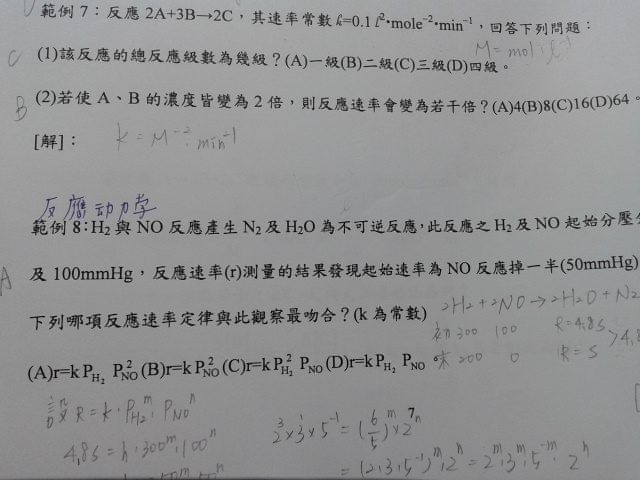 範例 7：反應 2A+3B→2C，其速率常數 k=0.1 ℓ²•mole⁻²•min⁻¹，回答下列問題：
M = mol·ℓ⁻¹
C (1)該反應的總反應級數為幾級？(A)一級(B)二級(C)三級(D)四級。
B (2)若使 A、B 的濃度皆變為 2 倍，則反應速率會變為若干倍？(A)4(B)8(C)16(D)64。
[解]： k = M⁻²·min⁻¹
反應动力学
範例 8：H₂ 與 NO 反應產生 N₂ 及 H₂O 為不可逆反應，此反應之 H₂ 及 NO 起始分壓
A 及 100mmHg，反應速率(r)測量的結果發現起始速率為 NO 反應掉一半(50mmHg)
下列哪項反應速率定律與此觀察最吻合？(k 為常數) 2H₂+2NO→2H₂O+N₂
初 300 100 R=4.8S
(A)r=k P_H₂ P²_NO (B)r=k P²_NO (C)r=k P²_H₂ P_NO (D)r=k P_H₂ P_NO。 末 200 0 R=S
設 R = k·P_H₂^m·P_NO^n
2³×3¹×5⁻¹ = (6/5)^m×2^n
4.8S = k·300^m·100^n
= (2·3·5⁻¹)^m·2^n = 2^m·3^m·5^-m·2^n